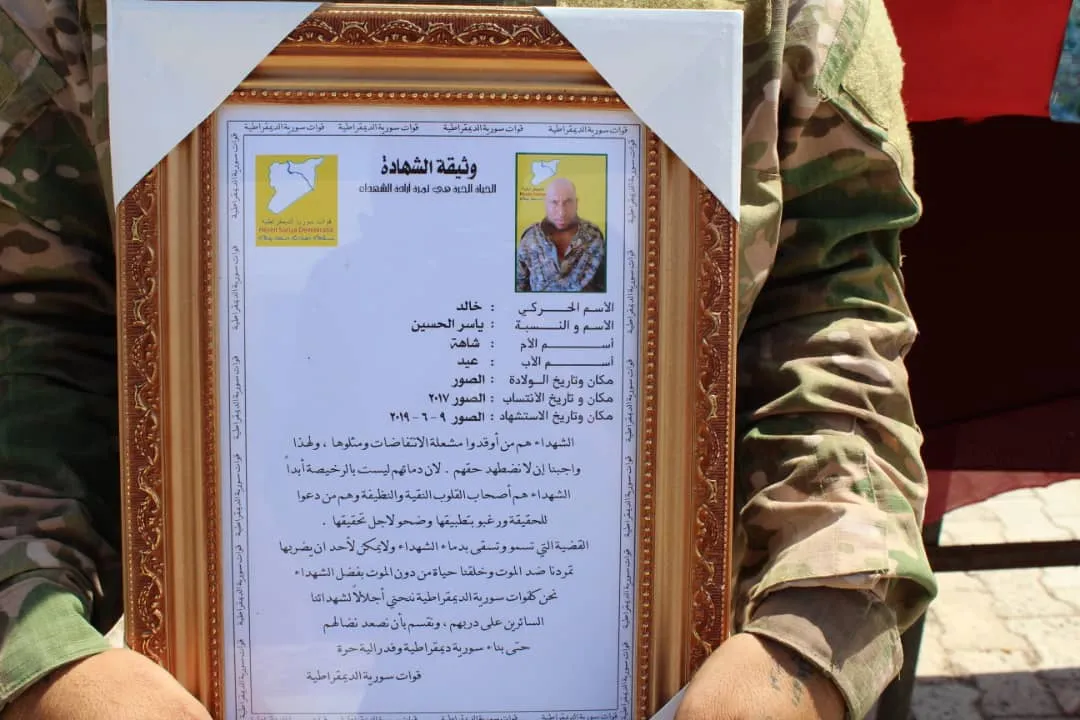 قوات سورية الديمقراطية قوات سورية الديمقراطية قوات سورية الديمقراطية قوات سورية الديمقراطية
وثيقة الشهادة
الحياة الحرة هي ثمرة ارادة الشهداء
قوات سوريا الديمقراطية
Hêzên Sûriya Demokratîk
الأسم الحركي : خالد
الاسم و النسبة : ياسر الحسين
أسم الأم : شاهة
أسم الأب : عيد
مكان وتاريخ الولادة : الصور
مكان و تاريخ الانتساب : الصور ٢٠١٧
مكان وتاريخ الاستشهاد : الصور ٩ - ٦ - ٢٠١٩
الشهداء هم من أوقدوا مشعلة الانتفاضات ومثلوها ، ولهذا
واجبنا إن لا نضطهد حقهم . لان دمائهم ليست بالرخيصة أبداً
الشهداء هم أصحاب القلوب النقية والنظيفة وهم من دعوا
للحقيقة ورغبو بتطبيقها وضحو لاجل تحقيقها .
القضية التي تسمو وتسقى بدماء الشهداء ولايمكن لأحد ان يضربها
تمردنا ضد الموت وخلقنا حياة من دون الموت بفضل الشهداء
نحن كقوات سورية الديمقراطية ننحني أجلالاً لشهدائنا
السائرين على دربهم ، ونقسم بأن نصعد نضالهم
حتى بناء سورية ديمقراطية وفدرالية حرة
قوات سورية الديمقراطية